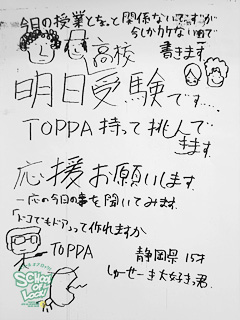 今日の授業とちょっと関係ないですが
今しかカけないので
書きます
高校
明日受験です....
TOPPA 持って挑んで
きます.
応援お願いします.
一応の今日の事を聞いてみます.
「ドコでもドア」って作れますか
TOPPA
静岡県 15才
しゅーせーき大好きっ君.
SCHOOL OF LOCK!